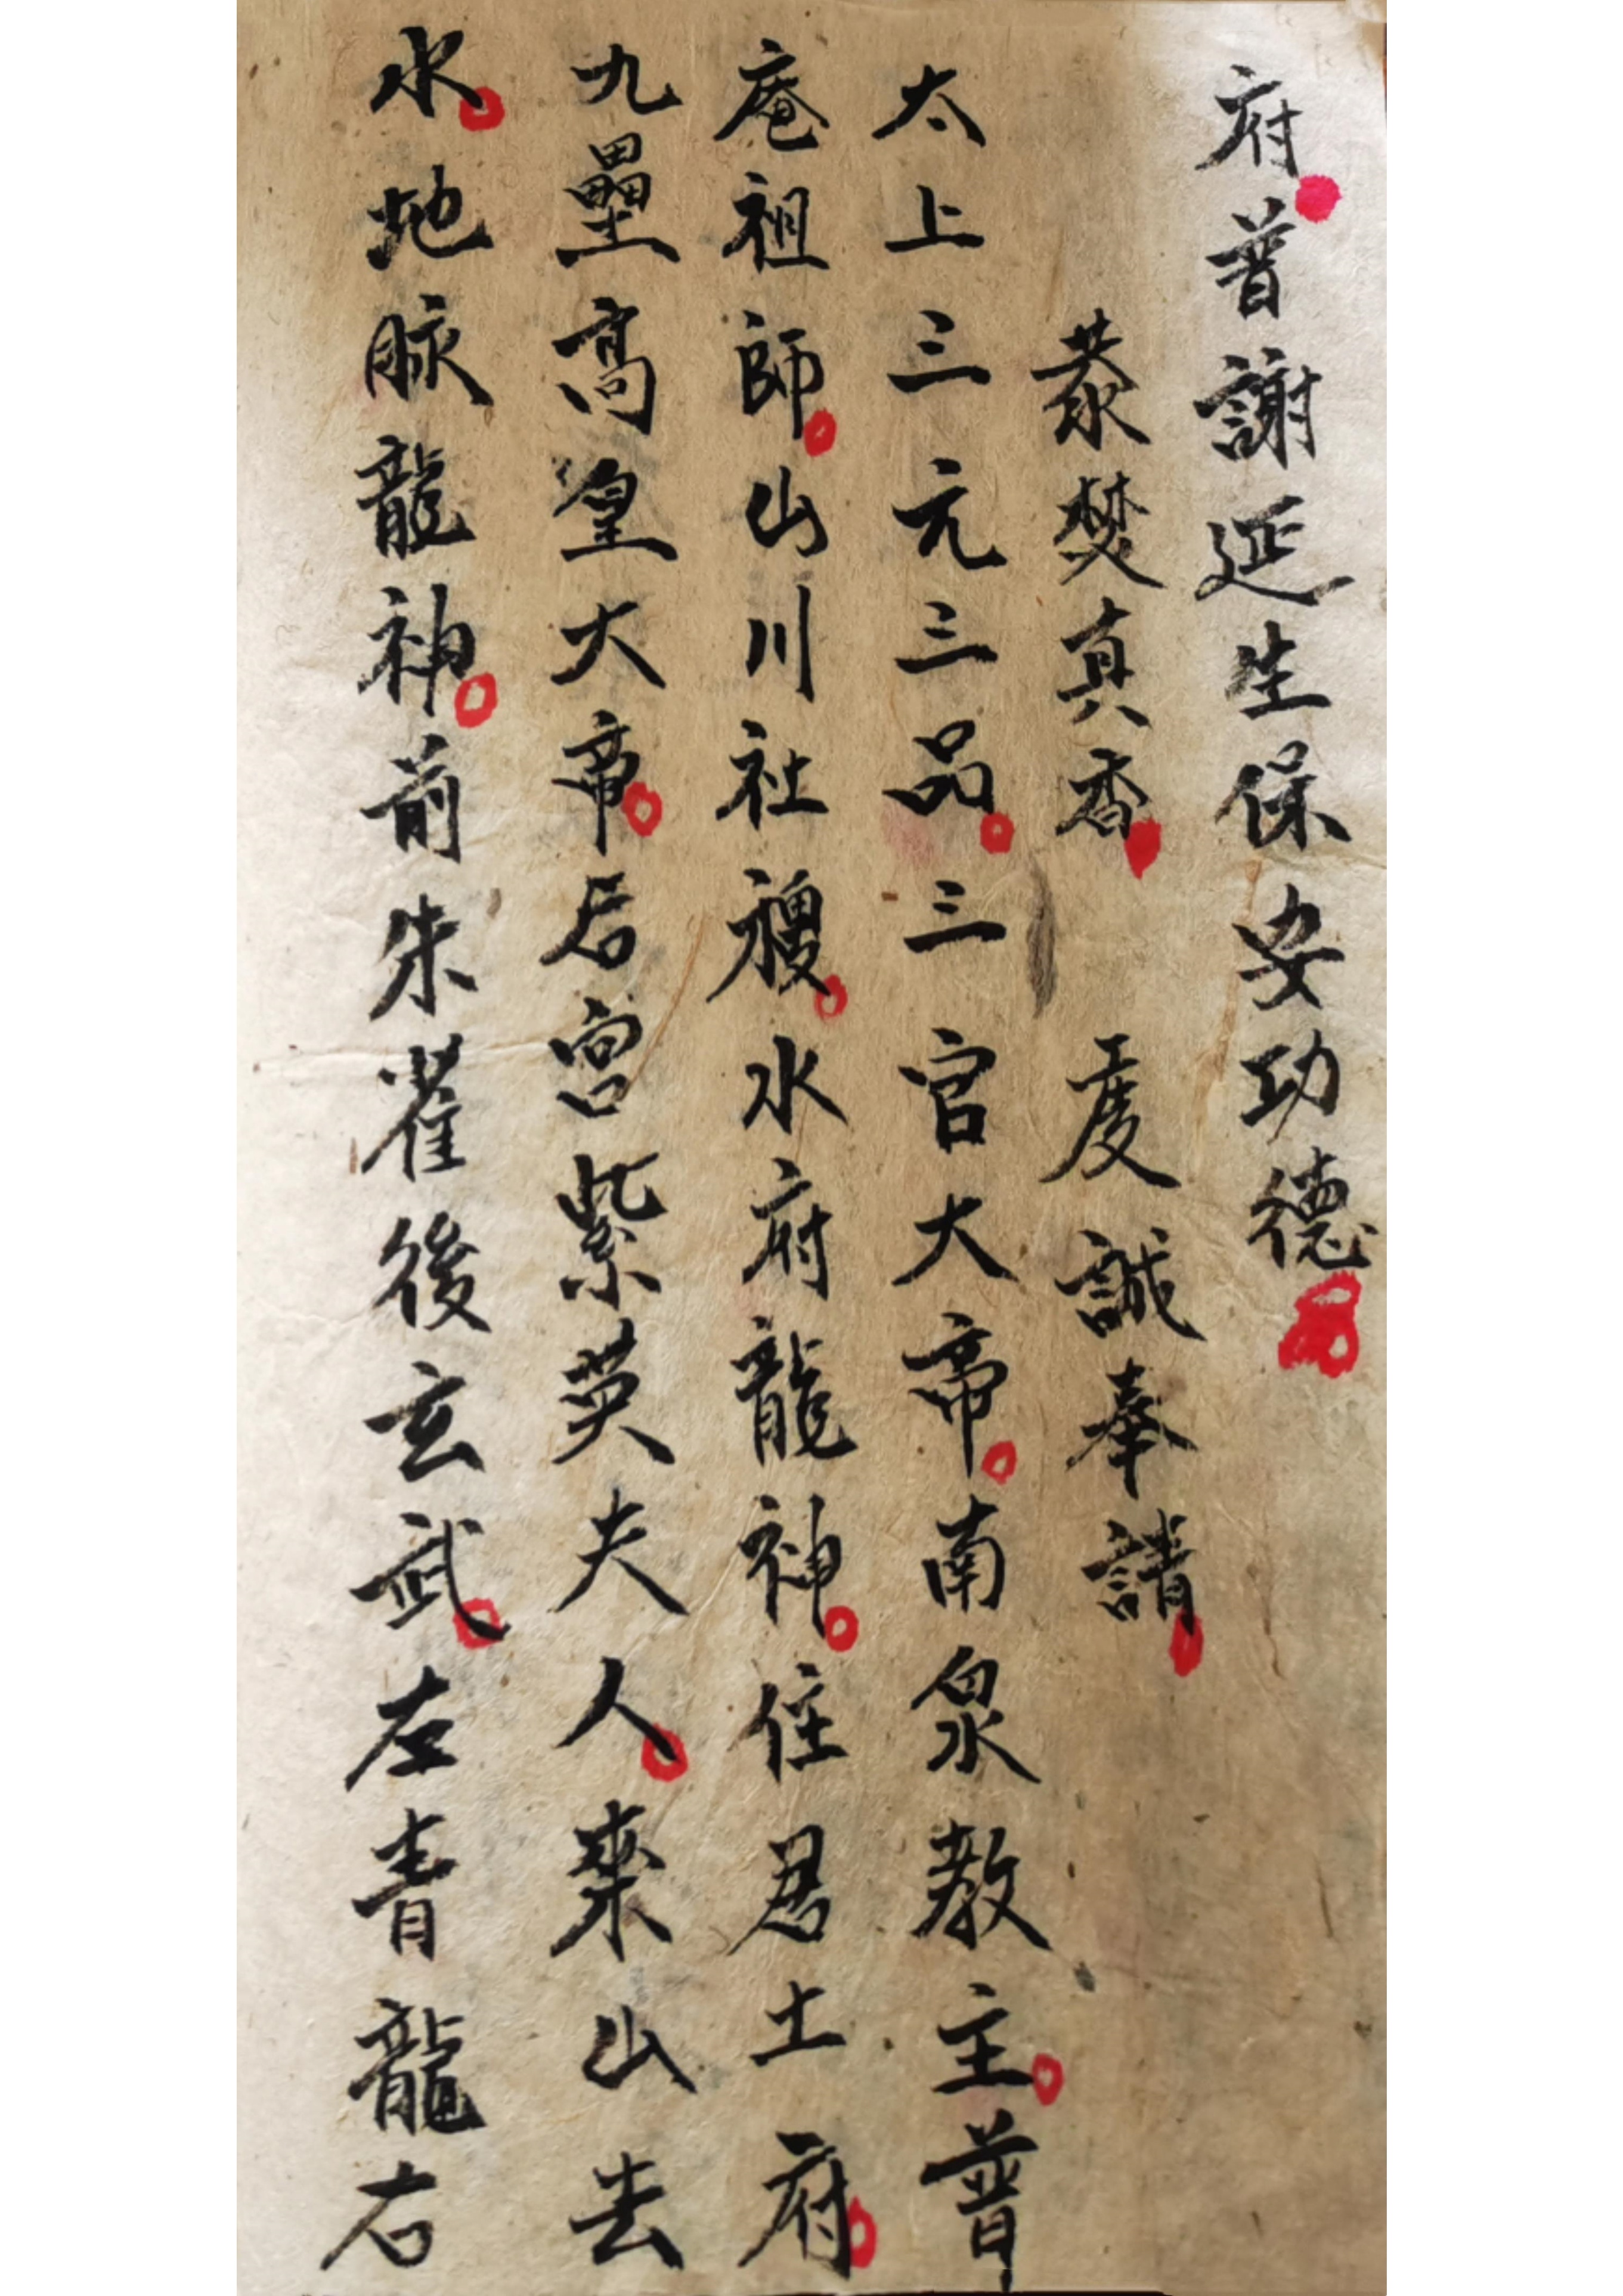 府普謝延生保安功德
恭焚真香 虔誠奉請
太上三元三品三官大帝南泉教主普
庵祖師山川社稷水府龍神住居土府
九壘高皇大帝后宮紫英夫人來山去
水地脈龍神前朱雀後玄武左青龍右